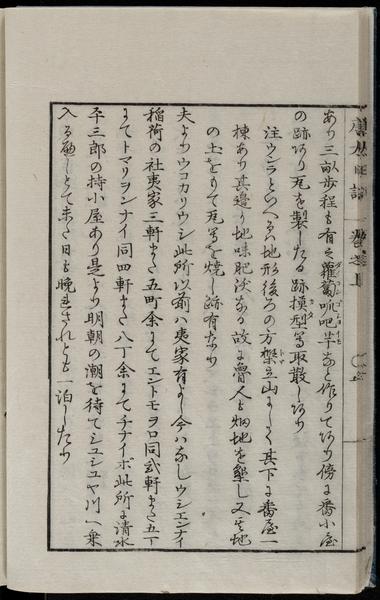 あり三畝歩程も有之蘿蔔呱吧芋なと作りてあり傍に番小屋
の跡あり瓦を製したる跡摸型等取散しあり
注ウンラといへるハ地形後ろの方槃立山にして其下に番屋一
棟あり其邊り地味肥沃なるか故に魯人も畑地を墾し又其地
の土をもて瓦等を焼し跡有なり
夫よりウコカリウシ此所以前ハ夷家有よし今ハなしウシエンナイ
稲荷の社夷家三軒また五町余にてエントモヲロ同弐軒また五丁
にてトマリヲンナイ同四軒また八丁余にてチナイボ此所に清水
平三郎の持小屋あり是より明朝の潮を待てシユシユヤ川へ乗
入る積りとて未た日も晩れされとも一泊したり